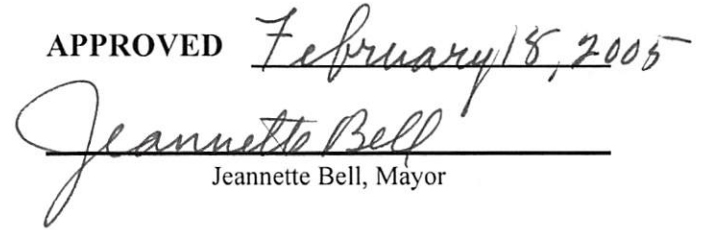 APPROVED February 18, 2005
Jeannette Bell
Jeannette Bell, Mayor